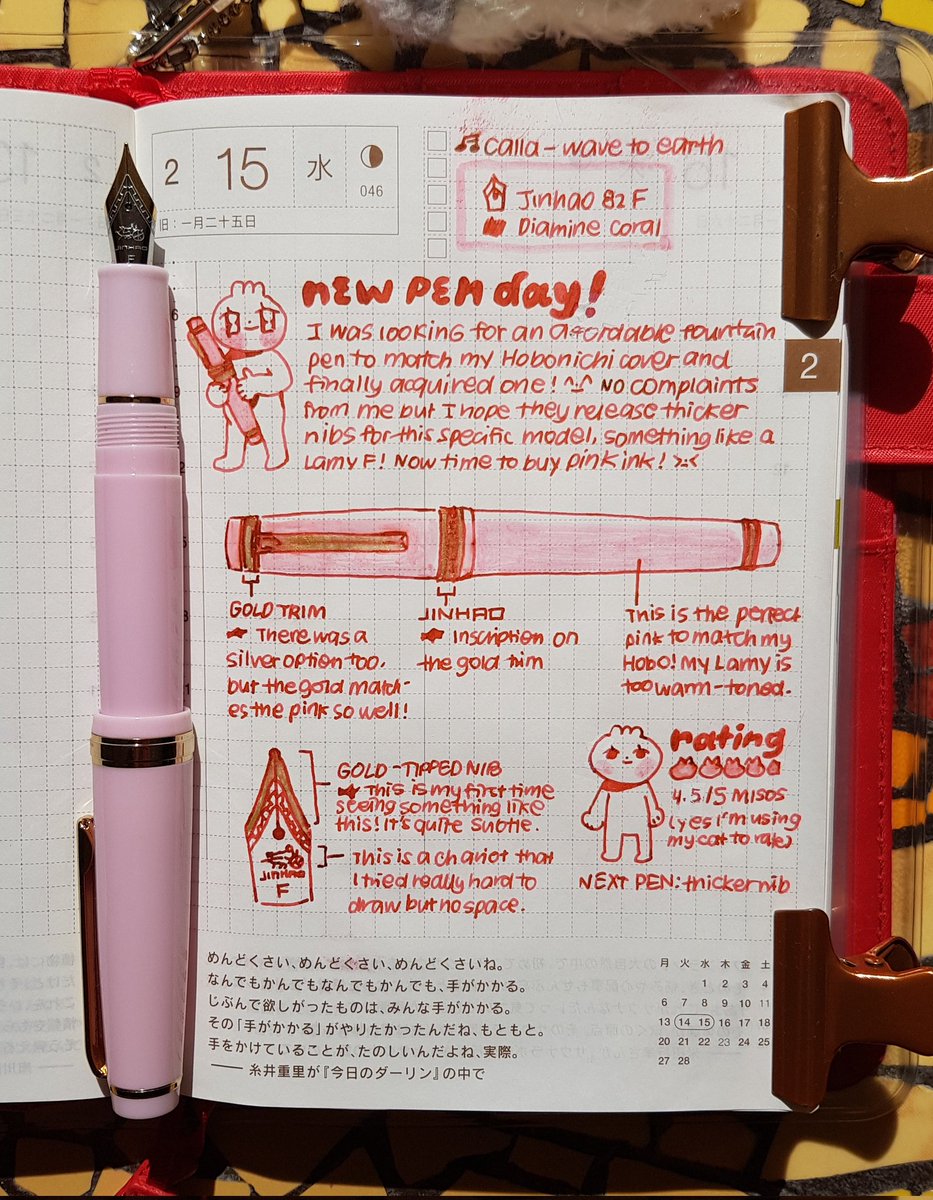 2 15 水
046
旧：一月二十五日
calla - wave to earth
Jinhao 82 F
Diamine coral
new pen day!
I was looking for an affordable fountain
pen to match my Hobonichi cover and
finally acquired one! ^_^ No complaints
from me but I hope they release thicker
nibs for this specific model, something like a
Lamy F! Now time to buy pink ink! >:<
2
GOLD TRIM
There was a
silver option too,
but the gold match-
es the pink so well!
JINHAO
Inscription on
the gold trim
This is the perfect
pink to match my
Hobo! My Lamy is
too warm-toned.
GOLD-TIPPED NIB
This is my first time
seeing something like
this! It's quite subtle.
This is a chariot that
I tried really hard to
draw but no space.
JINHAO
F
rating
4.5/5 misos
(yes I'm using
my cat to rate)
NEXT PEN: thicker nib
JINHAO
F
めんどくさい、めんどくさい、めんどくさいね。
なんでもかんでもなんでもかんでも、手がかかる。
じぶんで欲しがったものは、みんな手がかかる。
その「手がかかる」がやりたかったんだね、もともと。
手をかけていることが、たのしいんだよね、実際。
── 糸井重里が『今日のダーリン』の中で
月 火 水 木 金 土
1 2 3 4
6 7 8 9 10 11
13 14 15 16 17 18
20 21 22 23 24 25
27 28